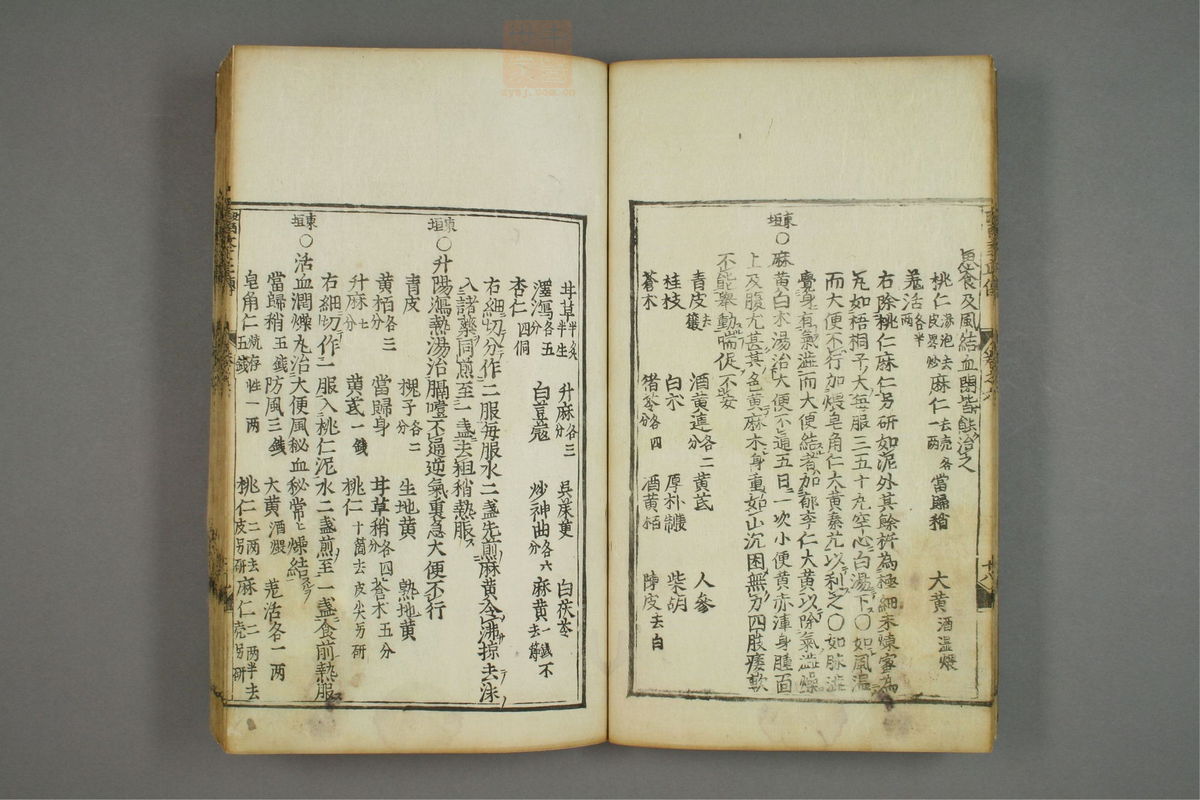 思食及風結血閉皆能治之
桃仁湯泡去皮另炒 麻仁去壳各一兩 當歸稍 大黄酒濕煨
羗活各半兩
右除桃仁麻仁另研如泥外其餘柝為極細末煉蜜為
丸如梧桐子大每服三五十丸空心白湯下〇如風濕
而大便不行加煨皂角仁大黄秦艽以利之〇如脉澁
覺身有氣澁而大便結者加郁李仁大黄以除氣澁燥
東垣〇麻黄白朮湯治大便不通五日一次小便黄赤渾身腫面
上及腹尤甚其色黄麻木身重如山沉困無力四肢痿軟
不能舉動喘促不安
青皮去穰 酒黄連各二分 黄芪 人參
桂枝 白朮 厚朴 柴胡
蒼朮 猪苓各四分 酒黄栢 陳皮去白
甘草半炙半生 升麻各三分 吳茱萸 白茯苓
澤瀉各五分 白荳蔻 炒神曲各六分 麻黄一錢不去節
杏仁四個
右細切分作二服每服水二盞先煎麻黄令沸掠去沫
入諸藥同煎至一盞去粗稍熱服
東垣〇升陽瀉熱湯治膈噎不通逆氣裏急大便不行
青皮 槐子各二分 生地黄 熟地黄
黄栢各三分 當歸身 甘草稍各四分 蒼朮五分
升麻七分 黄芪一錢 桃仁十箇去皮尖另研
右細切作一服入桃仁泥水二盞煎至一盞食前熱服
東垣〇活血潤燥丸治大便風秘血秘常常燥結
當歸稍五錢 防風三錢 大黄酒煨 羗活各一兩
皂角仁燒存性一兩五錢 桃仁二兩去皮另研 麻仁二兩半去壳另研